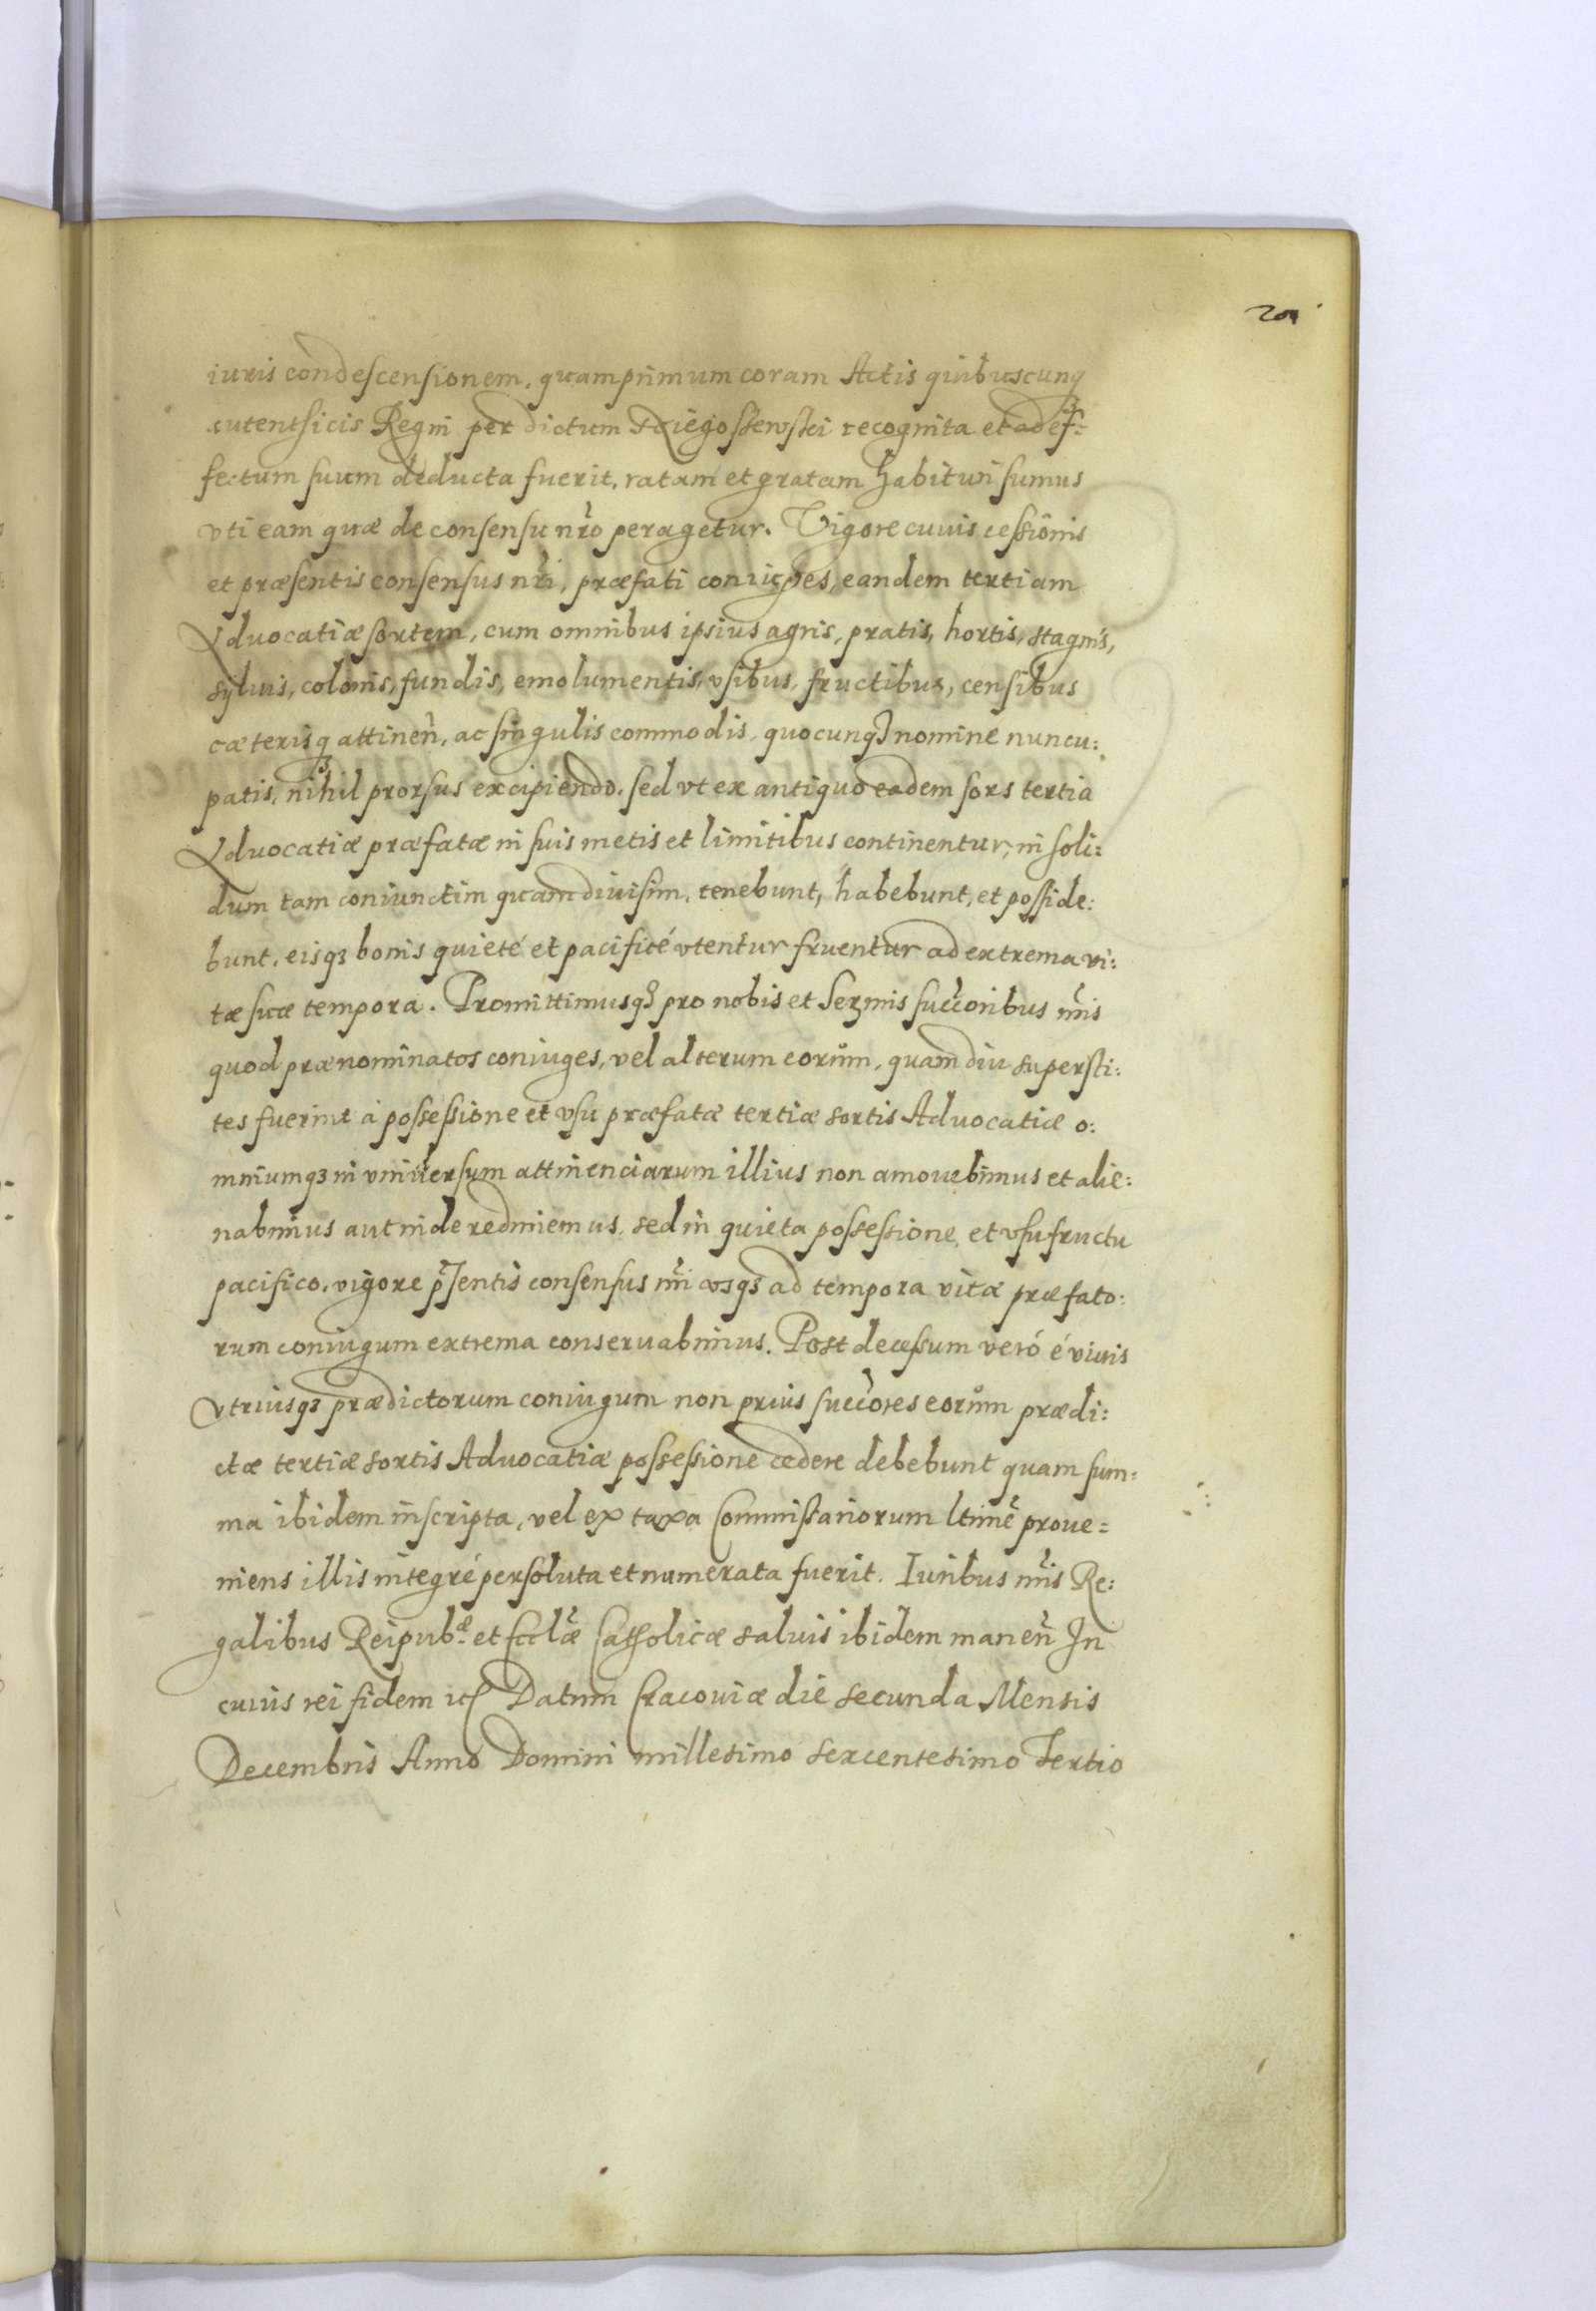 201
iuris condescensionem, quamprimum coram Actis quibuscunq
autenticis Regni per dictum recognita et ad ef-
fectum suum deducta fuerit, ratam et gratam habituri sumus
vti eam quæ de consensu nr̃o peragetur. Vigore cuius cessionis
et præsentis consensus nr̃i, præfati coniuges, eandem tertiam
Aduocatiæ sortem, cum omnibus ipsius agris, pratis, hortis, stagnis,
syluis, colonis, fundis, emolumentis, vsibus, fructibus, censibus
cæterisq attinen̄, ac singulis commodis, quocunqꝫ nomine nuncu:
patis, nihil prorsus excipiendo. sed vt ex antiquo eadem sors tertia
Aduocatiæ præfatæ in suis metis et limitibus continentur, in soli:
dum tam coniunctim quam diuisim, tenebunt, habebunt, et posside:
bunt, eisqꝫ bonis quieté et pacificé vtentur fruentur ad extrema vi:
tæ suæ tempora. Promittimusqꝫ pro nobis et Serꝫmis succ̃oribus nr̃is
quod prænominatos coniuges, vel alterum eorům, quamdiu supersti:
tes fuerint à possessione et vsu præfatæ tertiæ sortis Aduocatiæ o:
mniumqꝫ in vniuersum attinenciarum illius non amouebimus et alie:
nabimus aut inde redimemus, sed in quieta possessione, et vsufructu
pacifico, vigore pr̃sentis consensus nr̃i vsqꝫ ad tempora vitæ præfato:
rum coniugum extrema conseruabimus. Post decessum veró é viuis
vtriusqꝫ prædictorum coniugum non prius succ̃ores eorům prædi:
ctæ tertiæ sortis Aduocatiæ possessione cedere debebunt quam sum=
ma ibidem inscripta, vel ex taxa Commissariorum ltimẽ proue=
niens illis integré persoluta et numerata fuerit. Iuribus nr̃is Re:
galibus Reipubæ et Eccl̃æ Catholicæ saluis ibidem manen̄ In
cuius rei fidem etc Datum Cracouiæ die secunda Mensis
Decembris Anno Domini millesimo sexcentesimo Tertio